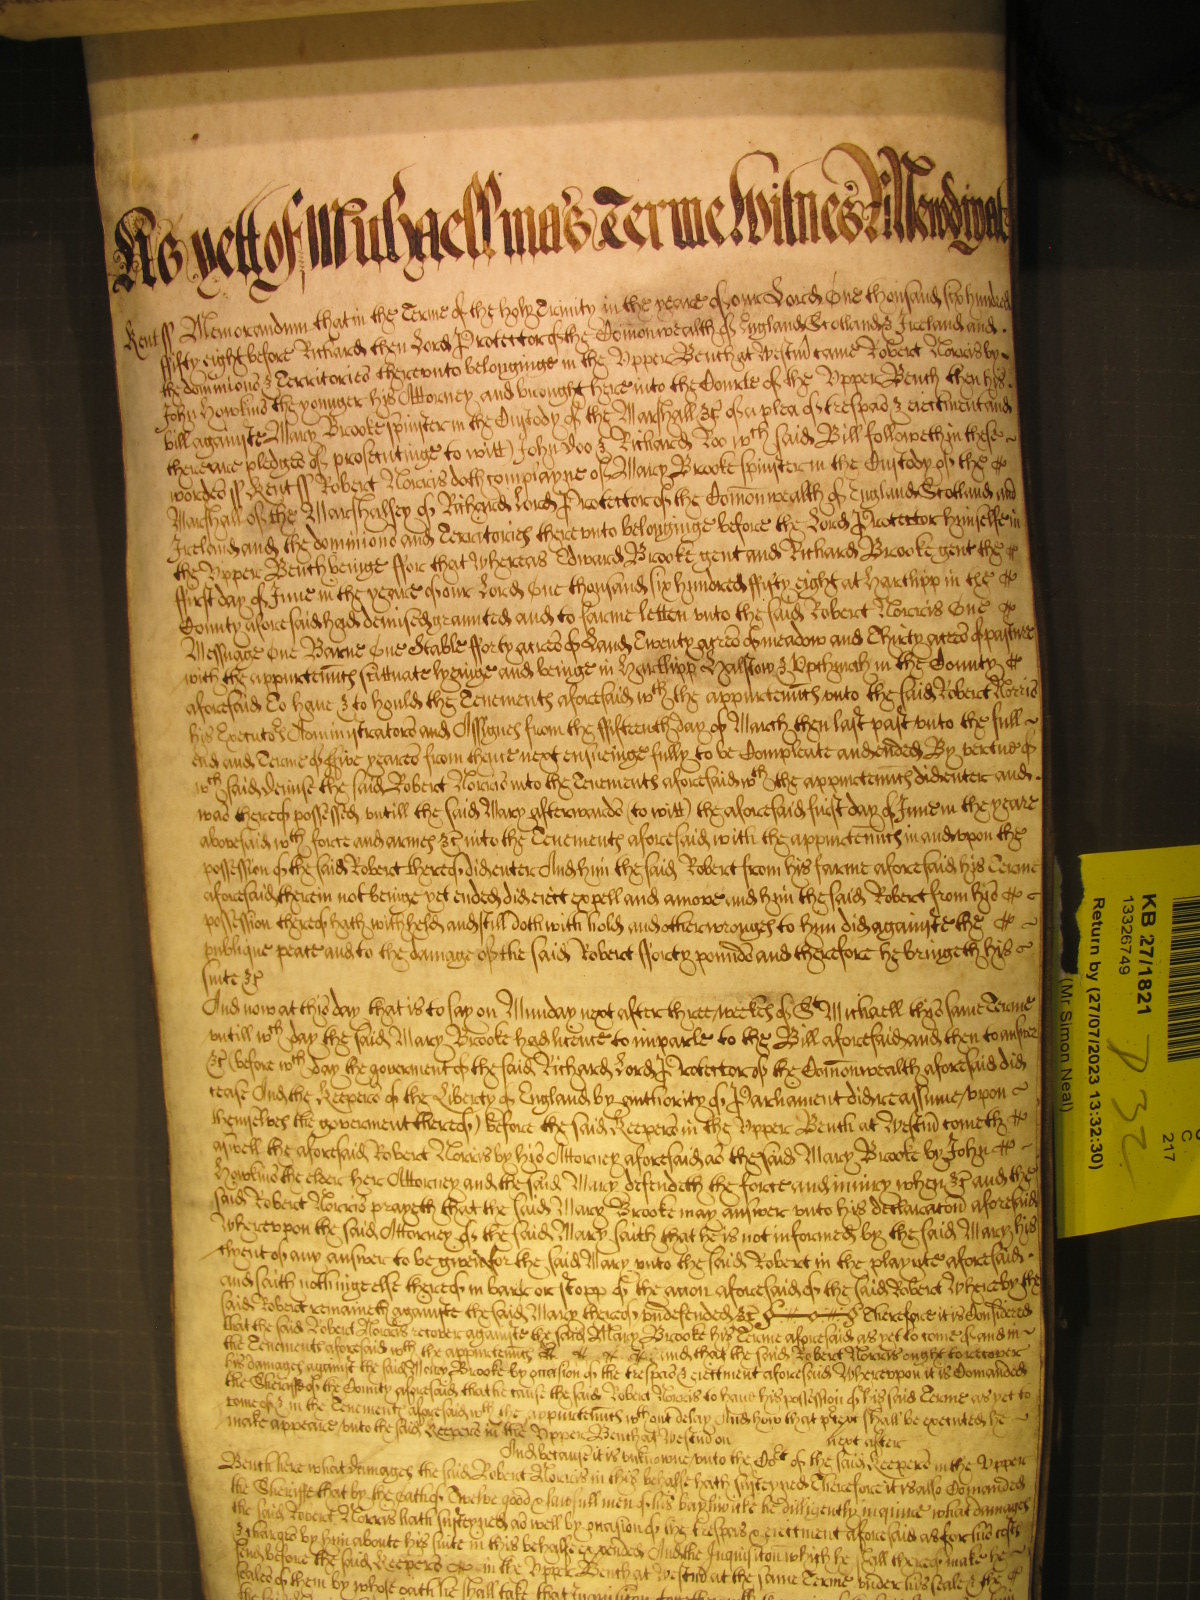 As yett of Michaellmas Terme Witnes R: Newdigate
Kent ss Memorandum that in the Terme of the holy Trinity in the yeare of our Lord One thousand six hundred
ffifty eight before Richard then Lord Protector of the Comonwealth of England Scotland & Ireland and
the dominions & Territories therevnto belonginge in the Vpper Bench at Westm came Robert Norris by
John Howkins the younger his Attorney and brought here into the Courte of the Vpper Bench then his
bill againste Mary Brooke spinster in the Custody of the Marshall &c of a plea of trespas & eiectment and
there are pledges of prosecutinge to witt John Doo & Richard Roo wch said Bill followeth in these
wordes ss Kent ss Robert Norris doth complayne of Mary Brooke spinster in the Custody of the
Marshall of the Marshalsey of Richard Lord Protector of the Comonwealth of England Scotland and
Ireland and the dominions and Territories therevnto belonginge before the Lord Protector himselfe in
the Vpper Bench beinge ffor that Whereas Edward Brooke gent and Richard Brooke gent the
ffirst day of June in the yeare of our Lord One thousand six hundred ffifty eight at Hartlipp in the
County aforesaid had demised graunted and to farme letten vnto the said Robert Norris One
Messuage One Barne One Stable fforty acres of Land Twenty acres of meadow and Thirty acres of pasture
with the appurtenncs scituate lyeinge and beinge in Hartlipp Halstow & Vpchurch in the County
aforesaid To have & to hould the Tenements aforesaid wth the appurtenncs vnto the said Robert Norris
his Executors Administrators and Assignes from the ffifteenth day of March then last past vnto the full
end and Terme of ffive yeares from thence next ensueinge fully to be Compleate and ended By vertue of
wch said demise the said Robert Norris into the Tenements aforesaid wth the appurtenncs did enter and
was thereof possessed vntill the said Mary afterwardes (to witt) the aforesaid first day of June in the yeare
abovesaid wth force and armes &c into the Tenements aforesaid with the appurtenncs in and vpon the
possession of the said Robert thereof did enter And him the said Robert from his farme aforesaid his Terme
aforesaid therein not beinge yet ended did eiect expell and amove and him the said Robert from his
possession thereof hath withheld and still doth withhold and other wronges to him did againste the
publique peace and to the damage of the said Robert fforty poundes and therefore he bringeth his
suite &c
And now at this day that is to say on Munday next after three weekes of St Michaell this same Terme
vntill wch day the said Mary Brooke had licence to imparle to the Bill aforesaid and then to answer
&c (before wch day the goverment of the said Richard Lord Protector of the Comonwealth aforesaid did
cease And the Keepers of the Liberty of England by authority of Parliament did reassume vpon
themselves the government thereof) before the said Keepers in the Vpper Bench at Westm cometh
aswell the aforesaid Robert Norris by his Attorney aforesaid as the said Mary Brooke by John
Howkins the elder her Attorney and the said Mary defendeth the force and iniury when &c and the
said Robert Norris prayeth that the said Mary Brooke may answer vnto his declaracon aforesaid
Wherevpon the said Attorney of the said Mary saith that he is not informed by the said Mary his
Clyent of any answer to be given for the said Mary vnto the said Robert in the playnte aforesaid
and saith nothinge else thereof in barr or stopp of the accon aforesaid of the said Robert Whereby the
said Robert remaineth againste the said Mary thereof vndefended &c Therefore it is Considered
that the said Robert Norris recover againste the said Mary Brooke his Terme aforesaid as yet to come of and in
the Tenements aforesaid wth the appurtenncs and that the said Robert Norris ought to recover
his damages against the said Mary Brooke by occasion of the trespas & eiectment aforesaid Wherevpon it is Comanded
the Sheriffe of the County aforesaid that he cause the said Robert Norris to have his possession of his said Terme as yet to
come of & in the Tenements aforesaid wth the appurtenncs wthout delay And how that precept shall be executed he
make appeare vnto the said Keepers in the Vpper Bench at Westm on next after
And because it is vnknowne vnto the Cort of the said Keepers in the Vpper
Bench here what damages the said Robert Norris in this behalfe hath susteyned Therefore it is also Comanded
the Sheriffe that by the oath of Twelve good & lawfull men of his bayliwicke he dilligently inquire what damages
the said Robert Norris hath susteyned as well by occasion of the trespas & eiectment aforesaid as for his costs
& charges by him aboute his suite in this behalfe expended And the Inquisicon which he shall thereof make he
send before the said Keepers in the Vpper Bench at Westm at the same Terme vnder his seale & the
seales of them by whose oath he shall take that inquisicon
KB 27/1821
13326749
Return by (27/07/2023 13:32:30)
(Mr Simon Neal)
C
217